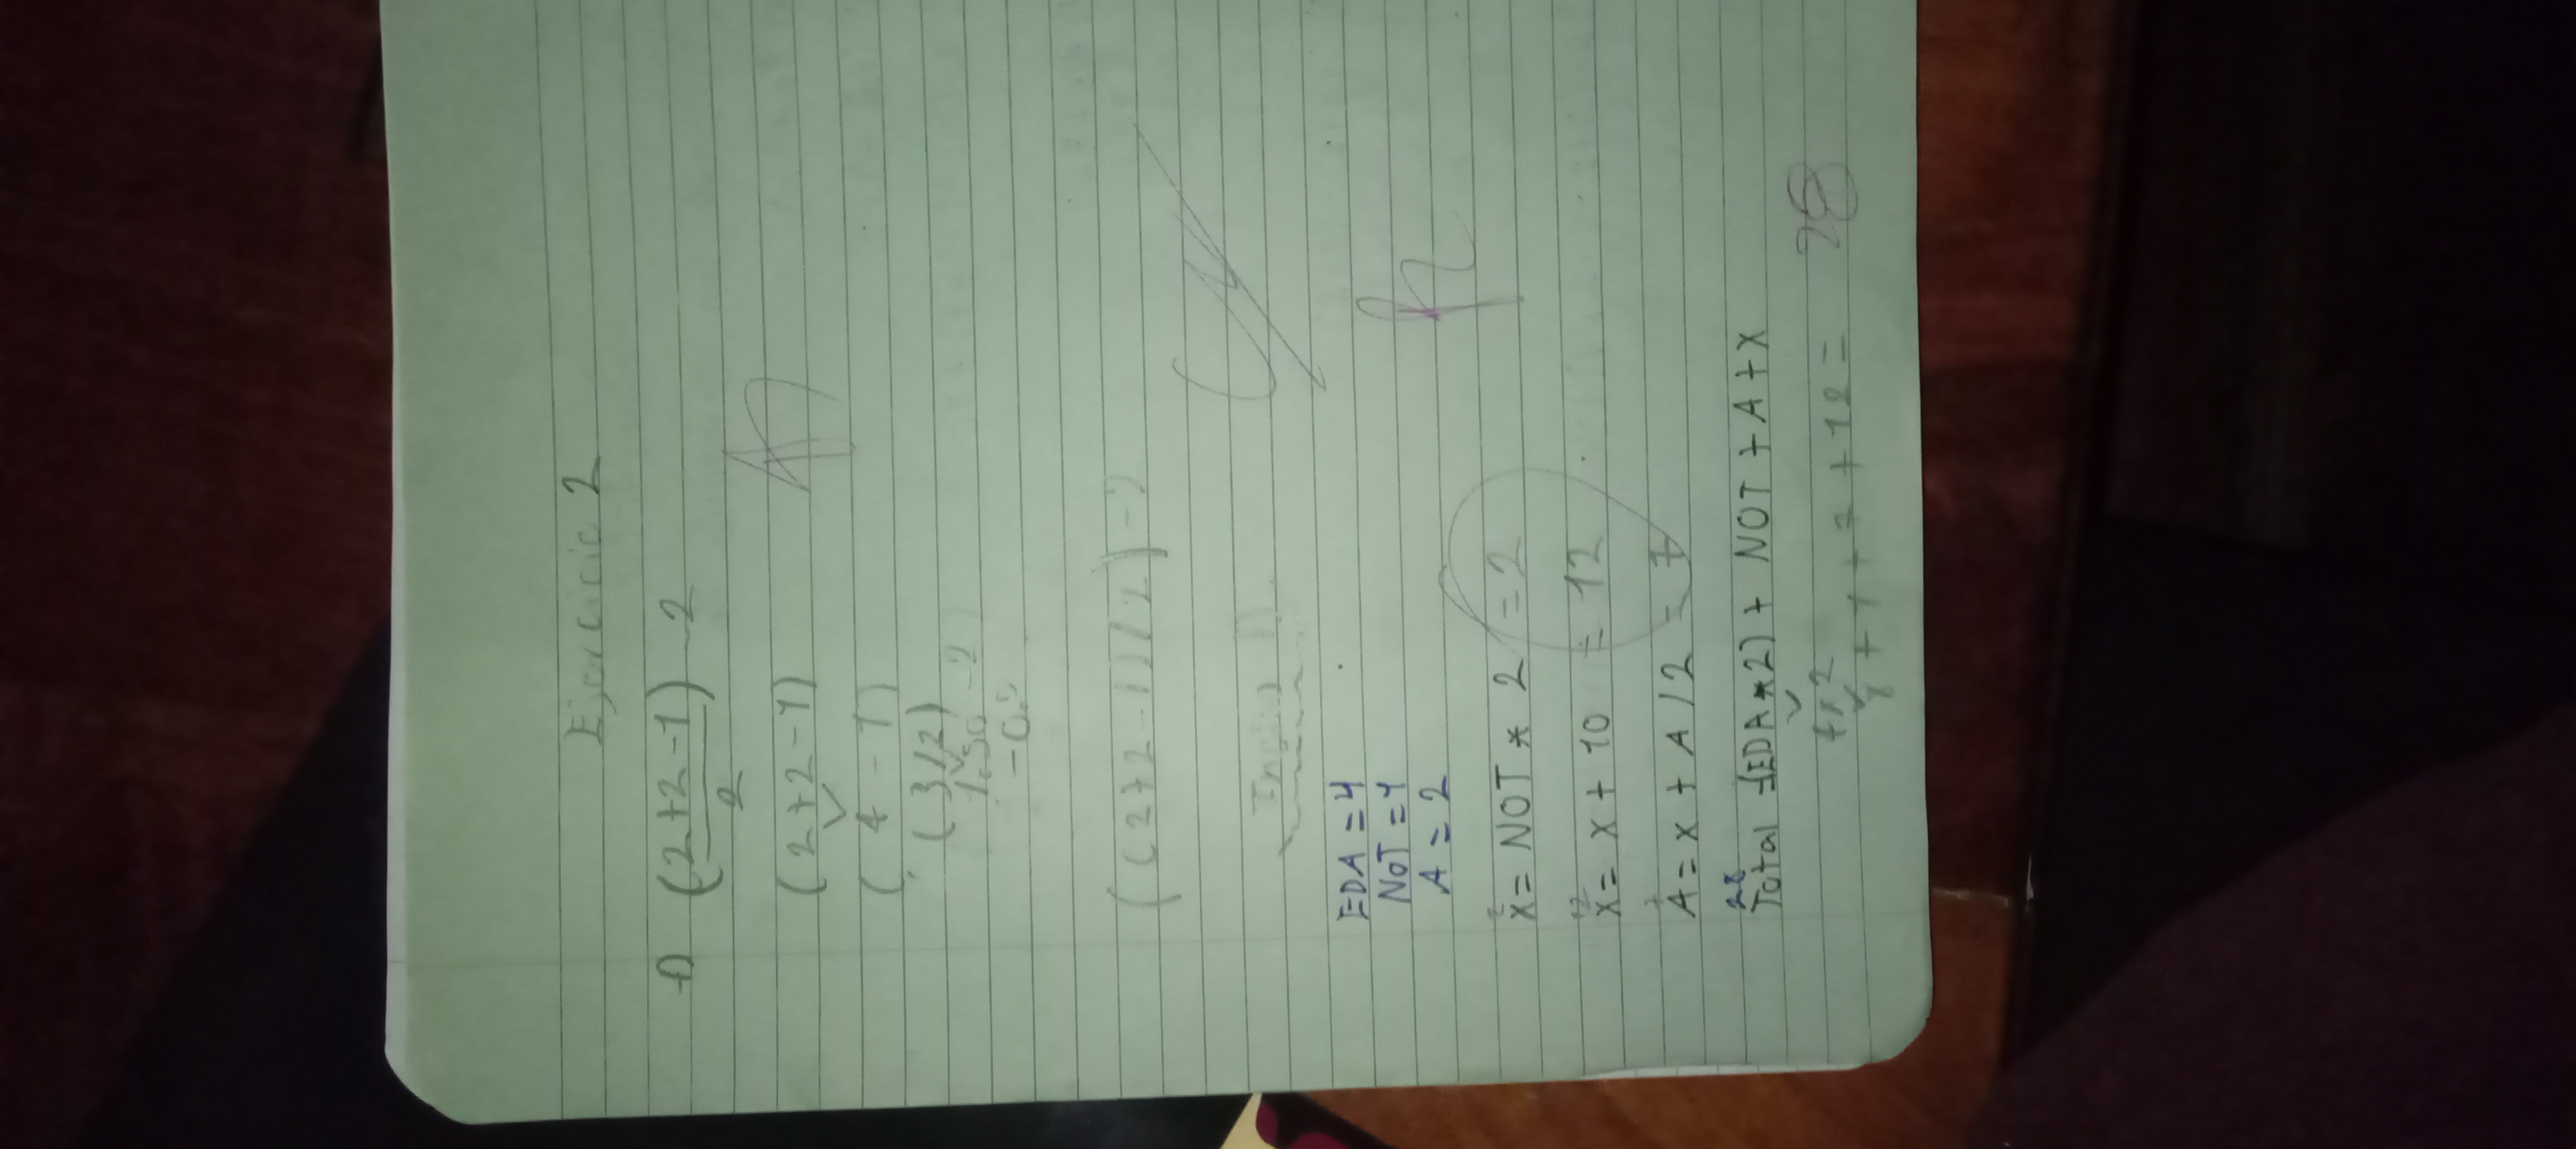 Ejercicio 2
1) (2+2-1) - 2
2
(2+2-1)
(4-1)
(3/2)
1.50 - 2
-0.5
((2+2-1)/2)-2
EDA = 4
NOT = 1
A = 2
2
X = NOT * 2 = 2
12
X = X + 10 = 12
7
A = X + A / 2 = 7
28
Total = (EDA * 2) + NOT + A + X
4x2
8 + 1 + 7 + 12 = 28